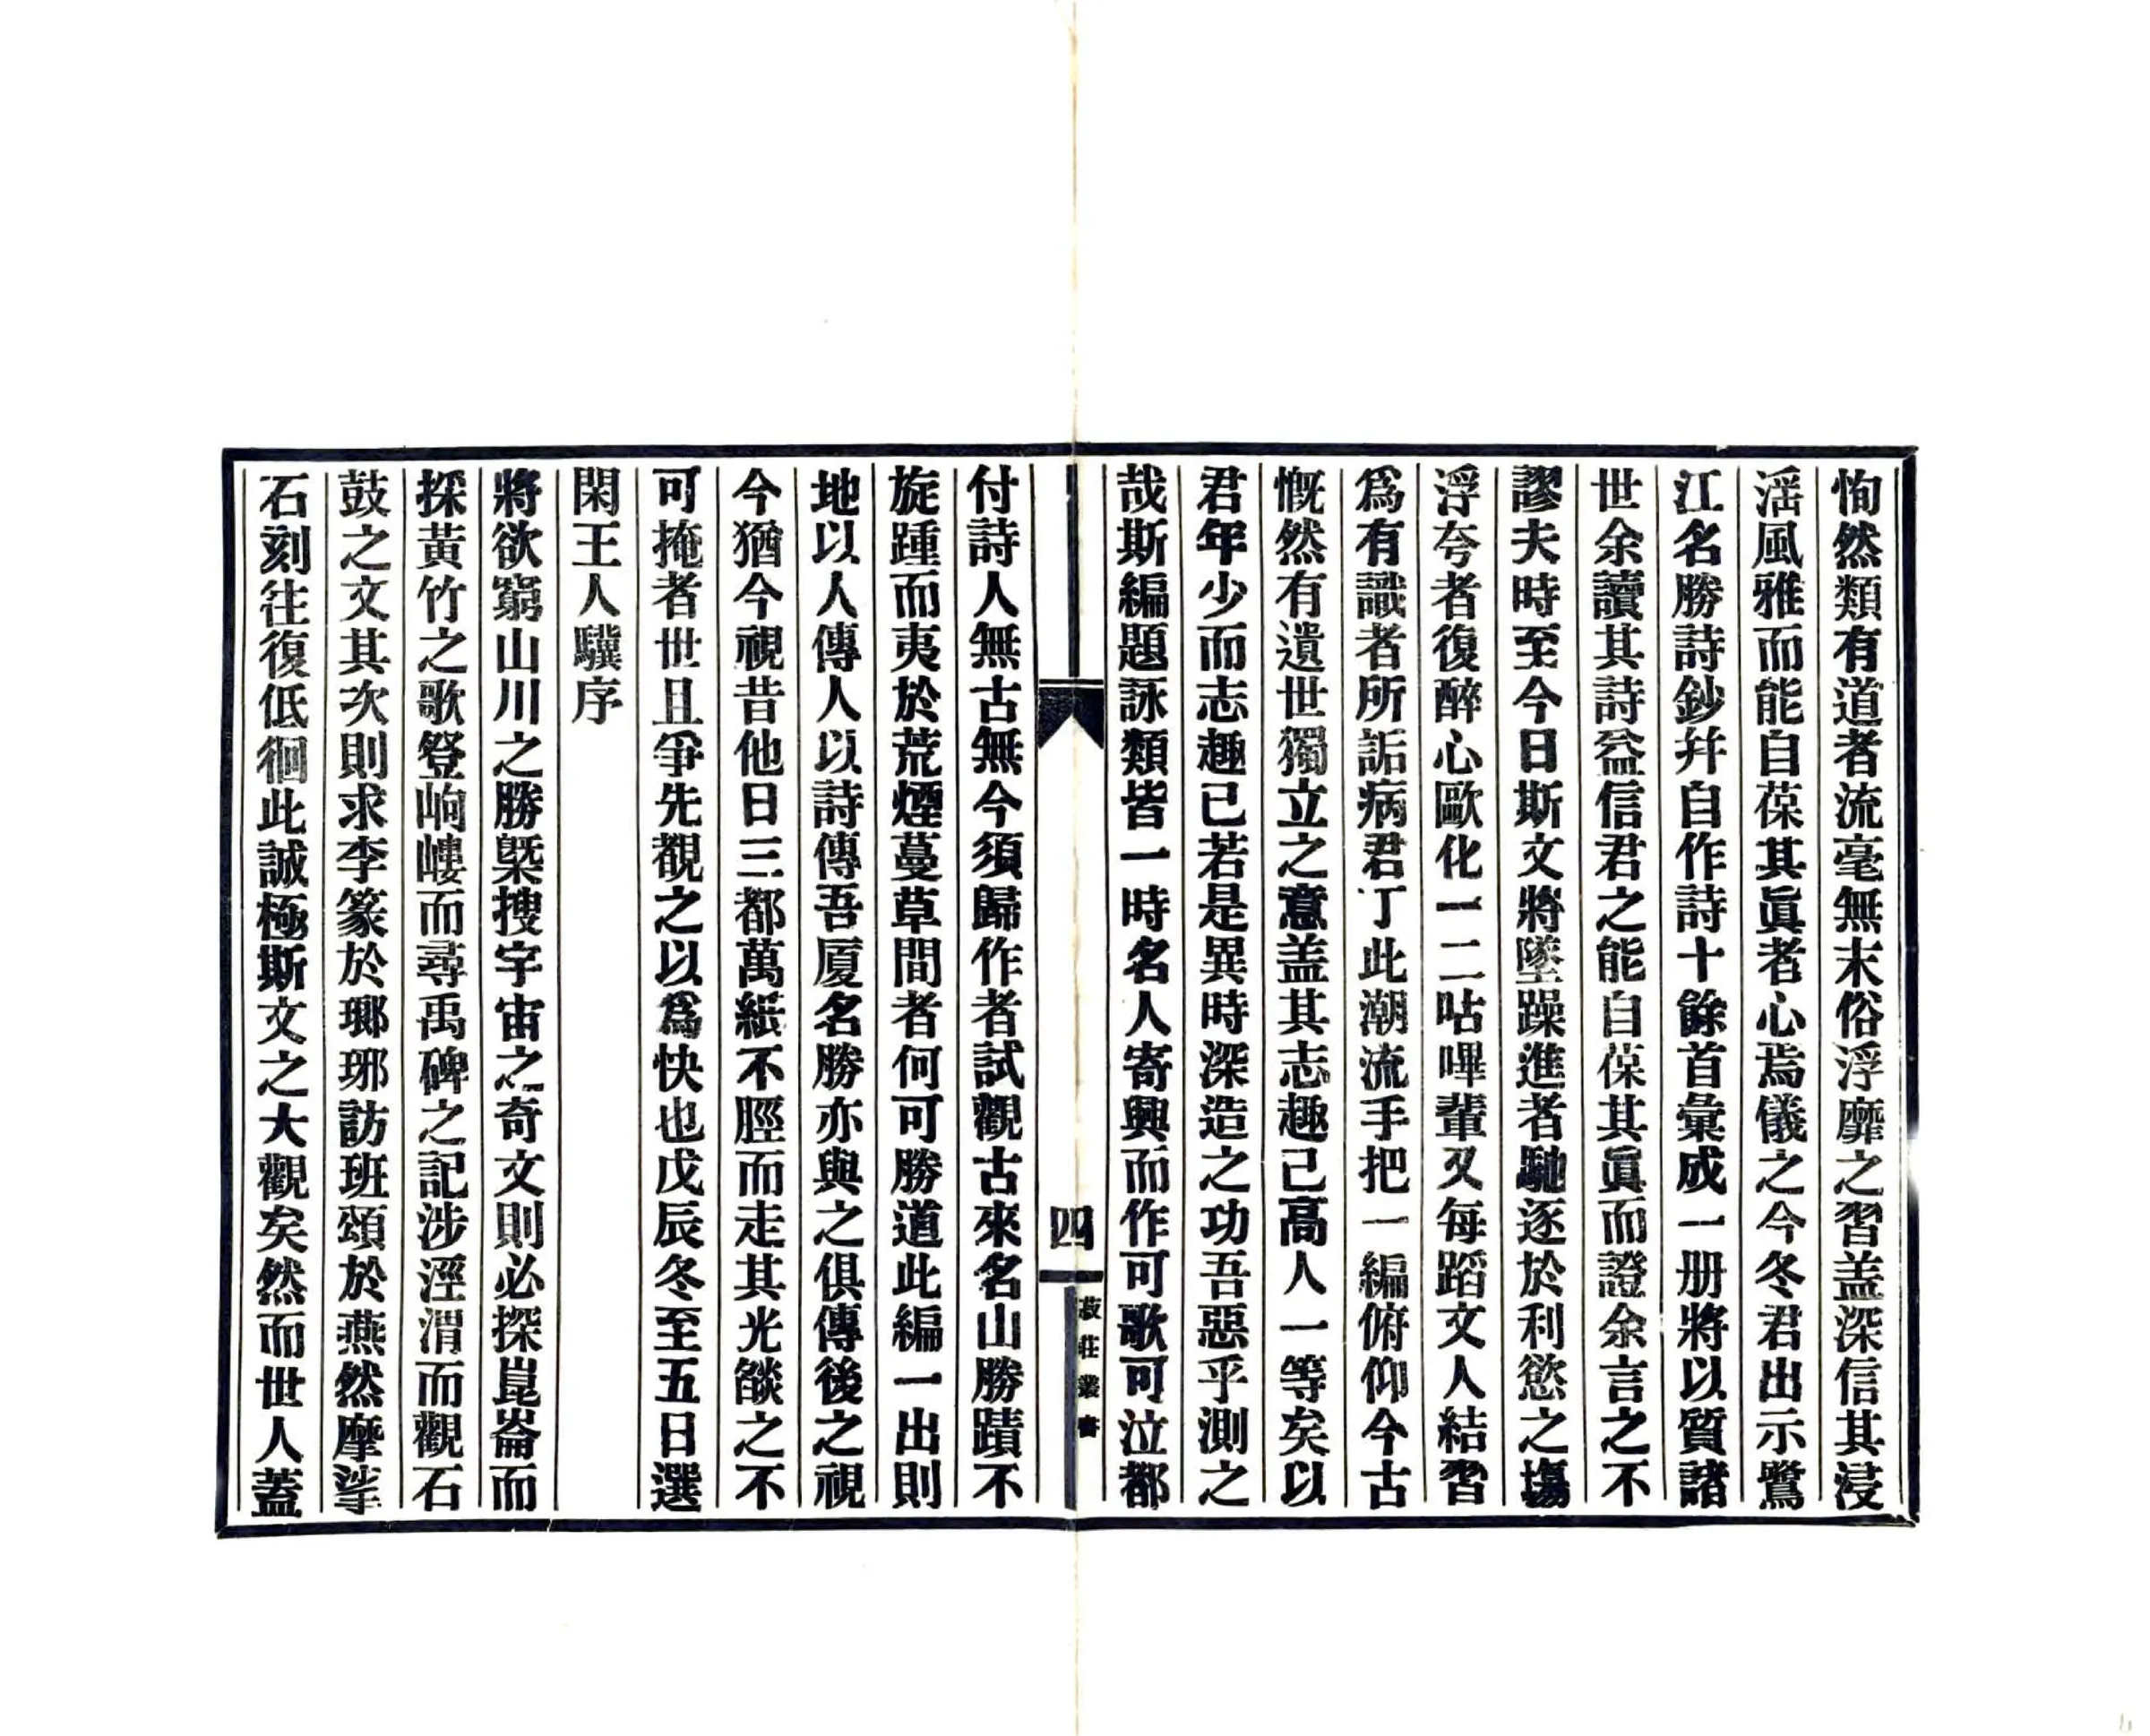 恂然類有道者流毫無末俗浮靡之習盖深信其浸
滛風雅而能自葆其眞者心焉儀之今冬君出示鷺
江名勝詩鈔幷自作詩十餘首彙成一册將以質諸
世余讀其詩益信君之能自葆其眞而證余言之不
謬夫時至今日斯文將墜躁進者馳逐於利慾之塲
浮夸者復醉心歐化一二呫嗶輩又每蹈文人結習
爲有識者所詬病君丁此潮流手把一編俯仰今古
慨然有遺世獨立之意盖其志趣己高人一等矣以
君年少而志趣已若是異時深造之功吾惡乎測之
哉斯編題詠類皆一時名人寄興而作可歌可泣都
四
菽莊叢書
付詩人無古無今須歸作者試觀古來名山勝蹟不
旋踵而夷於荒煙蔓草間者何可勝道此編一出則
地以人傳人以詩傳吾厦名勝亦與之俱傳後之視
今猶今視昔他日三都萬紙不脛而走其光燄之不
可掩者世且爭先覩之以爲快也戊辰冬至五日選
閑王人驥序
將欲窮山川之勝槩搜宇宙之奇文則必探崑崙而
採黃竹之歌登岣嶁而尋禹碑之記涉涇渭而觀石
鼓之文其次則求李篆於瑯琊訪班頌於燕然摩挲
石刻往復低徊此誠極斯文之大觀矣然而世人蓋